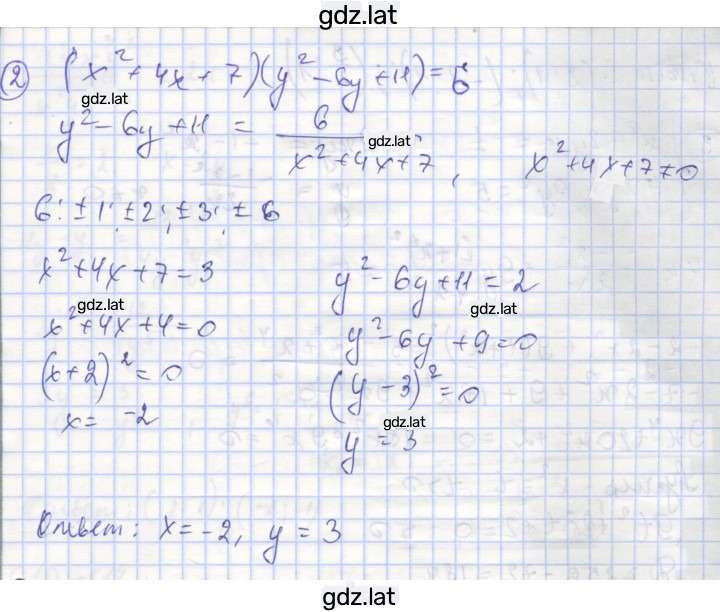 gdz.lat
② (x² + 4x + 7)(y² - 6y + 11) = 6
gdz.lat
y² - 6y + 11 = 6 / (x² + 4x + 7), x² + 4x + 7 ≠ 0
gdz.lat
6: ±1; ±2; ±3; ±6
x² + 4x + 7 = 3
y² - 6y + 11 = 2
gdz.lat
gdz.lat
x² + 4x + 4 = 0
y² - 6y + 9 = 0
(x+2)² = 0
(y - 3)² = 0
x = -2
gdz.lat
y = 3
Ответ: x = -2, y = 3
gdz.lat